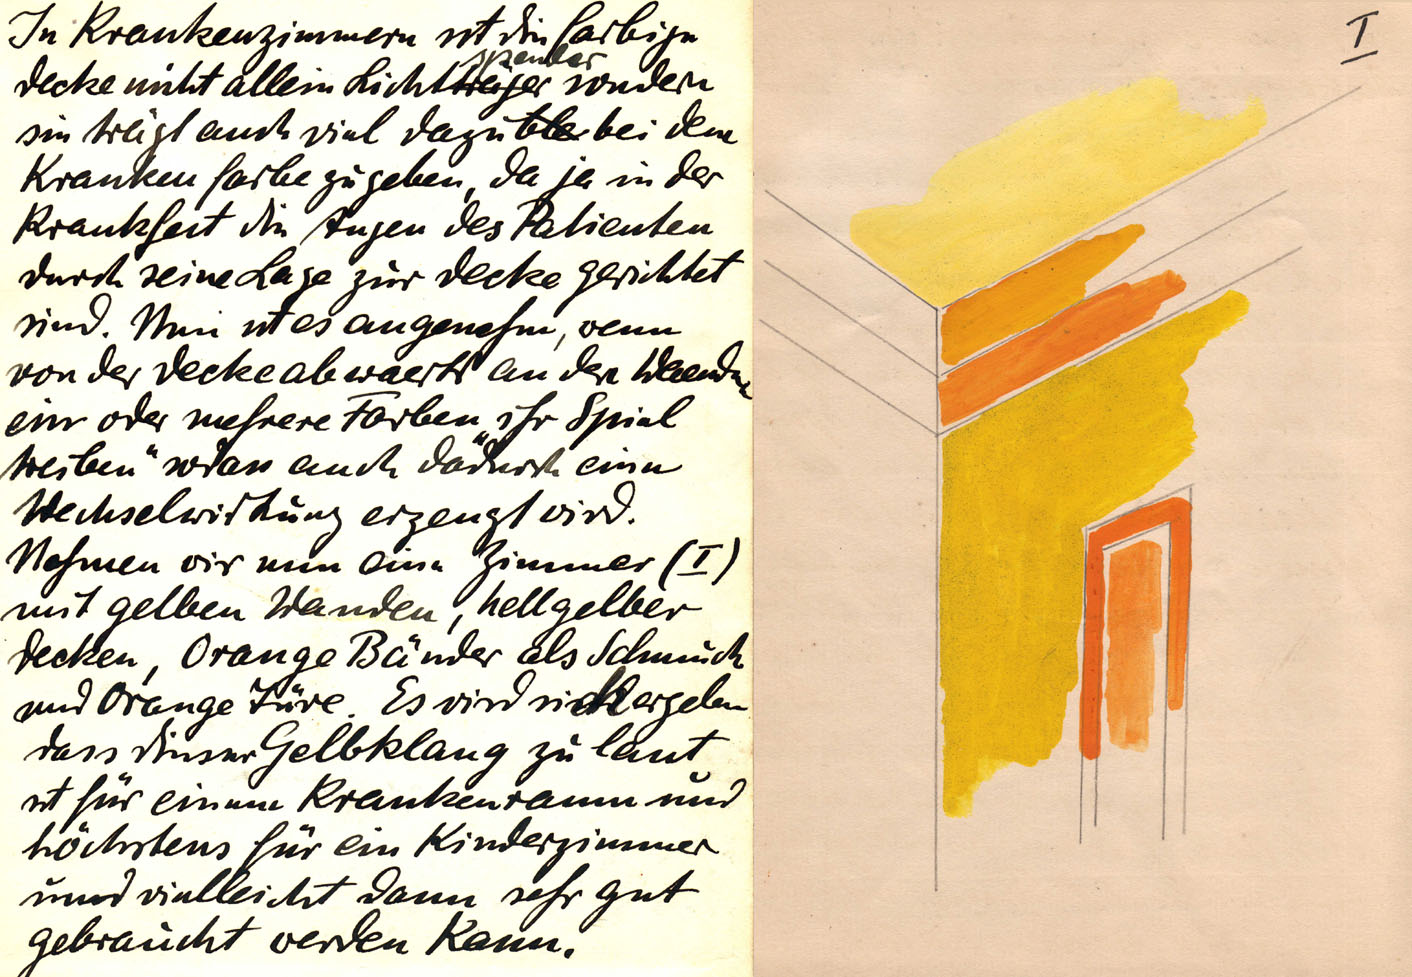 In Krankenzimmern ist die farbige
decke nicht allein Lichtspender sondern
sie trägt auch viel dazu bei dem
Kranken farbe zu geben, da ja in der
Krankheit die Augen des Patienten
durch seine Lage zur decke gerichtet
sind. Nun ist es angenehm, wenn
von der decke abwaerts an den Waenden
eine oder mehrere Farben „ihr Spiel
treiben“ sodass auch dadurch eine
Wechselwirkung erzeugt wird.
Nehmen wir nun eine Zimmer (I)
mit gelben Wanden, hellgelber
decken, Orange Bänder als Schmuck
und Orange Türe. Es wird sich ergeben
dass dieser Gelbklang zu laut
ist für einem Krankenraum und
höchstens für ein Kinderzimmer
und vielleicht dann sehr gut
gebraucht werden kann.
I